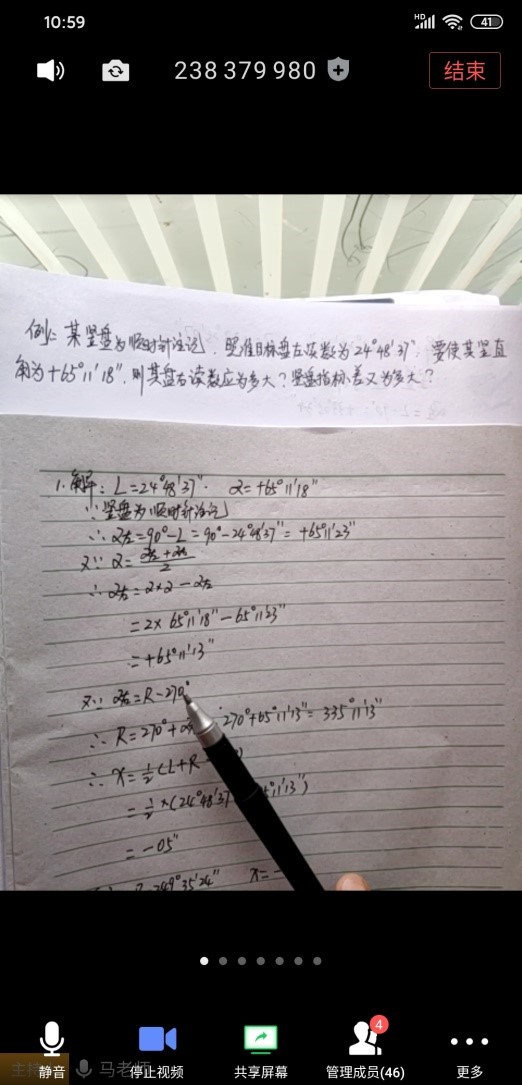 10:59
HD
41
238 379 980
结束
例1: 某竖盘为顺时针注记, 照准目标盘左读数为24°48′37″, 要使其竖直
角为+65°11′18″, 则其盘右读数应为多大? 竖盘指标差又为多大?
1.解: L=24°48′37″ α=+65°11′18″
∵竖盘为顺时针注记
∴α左=90°-L=90°-24°48′37″=+65°11′23″
又∵α=(α左+α右)/2
∴α右=2×α-α左
=2×65°11′18″-65°11′23″
=+65°11′13″
又∵α右=R-270°
∴R=270°+α 270°+65°11′13″=335°11′13″
∴x=1/2(L+R
=1/2×(24°48′37 5°11′13″)
=-05″
249°35′24″ x=-
4
主持
马老师
静音
停止视频
共享屏幕
管理成员(46)
更多